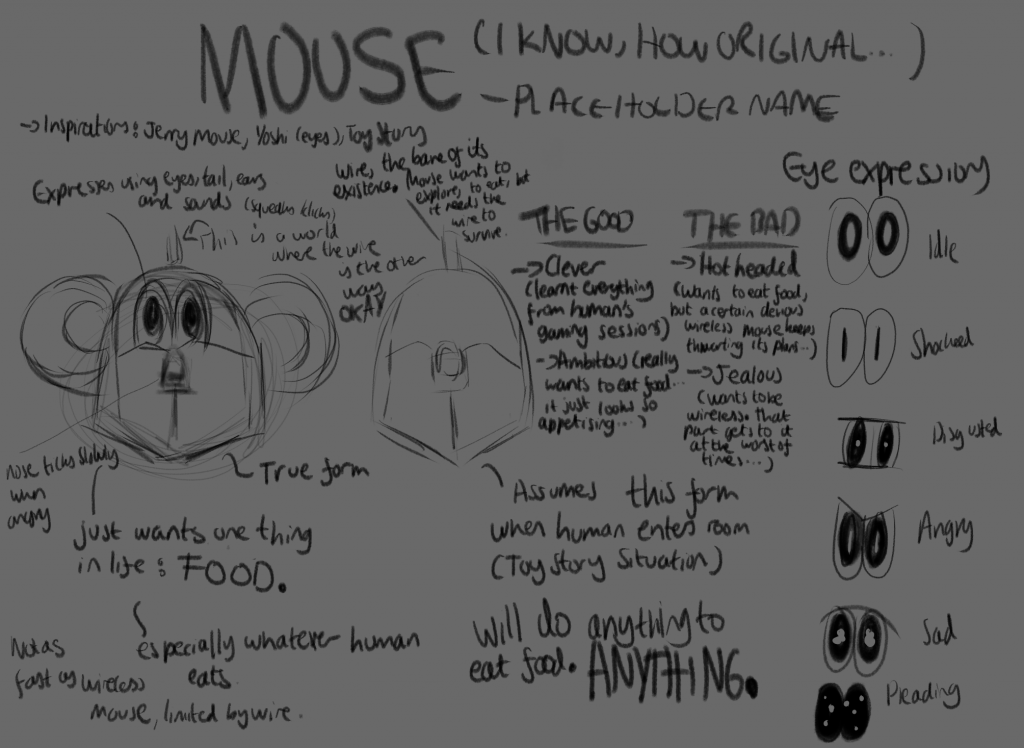 MOUSE (I KNOW, HOW ORIGINAL...)
- PLACEHOLDER NAME
-> Inspirations: Jerry Mouse, Yoshi (eyes), Toy Story
Expresses using eyes, tail, ears
and sounds (squeaks, clicks)
This is a world
where the wire
is the other
way
OKAY
Wire, the bane of its
existence. Mouse wants to
explore, to eat, but
it needs the
wire to
survive.
THE GOOD
-> Clever
(learnt everything
from human's
gaming sessions)
-> Ambitious (really
wants to eat food...
it just looks so
appetising....)
THE BAD
-> Hot headed
(wants to eat food,
but a certain devious
wireless mouse keeps
thwarting its plans...)
-> Jealous
(wants to be
wireless. that
part gets to it
at the worst of
times...)
Eye expression
Idle
Shocked
Disgusted
Angry
Sad
Pleading
nose ticks slowly
when
angry
True form
just wants one thing
in life : FOOD.
especially whatever human
eats.
Not as
fast as wireless
mouse, limited by wire.
Assumes this form
when human enters room
(Toy Story Situation)
Will do anything to
eat food. ANYTHING.